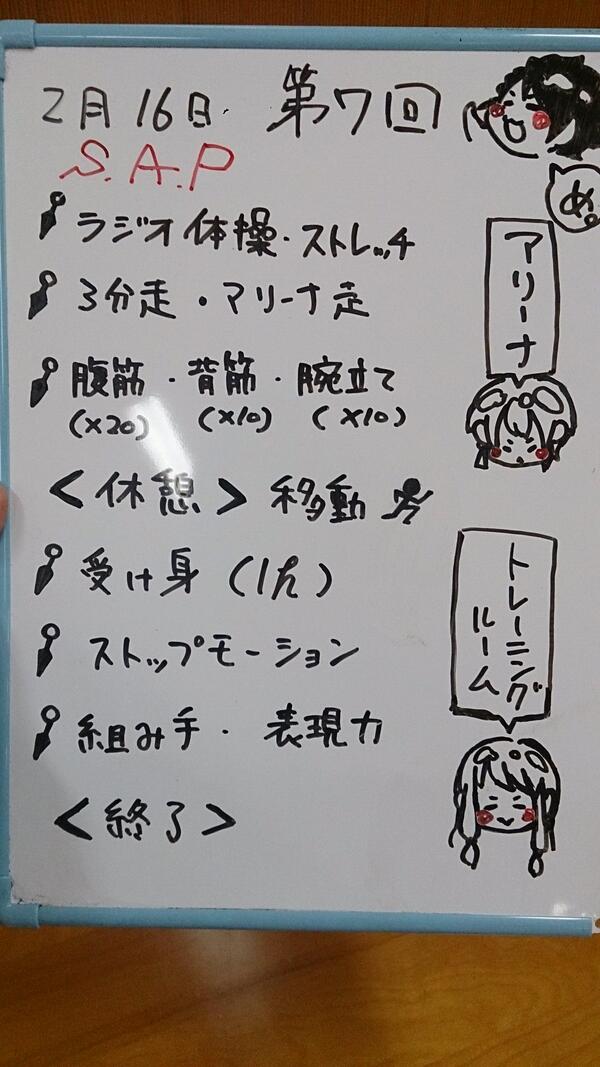 2月16日. 第7回
S.A.P
め。
ラジオ体操・ストレッチ
アリーナ
3分走・アリーナ走
腹筋・背筋・腕立て
(×20) (×10) (×10)
<休憩> 移動
受け身 (1h)
トレーニング
ルーム
ストップモーション
組み手・表現力
<終了>